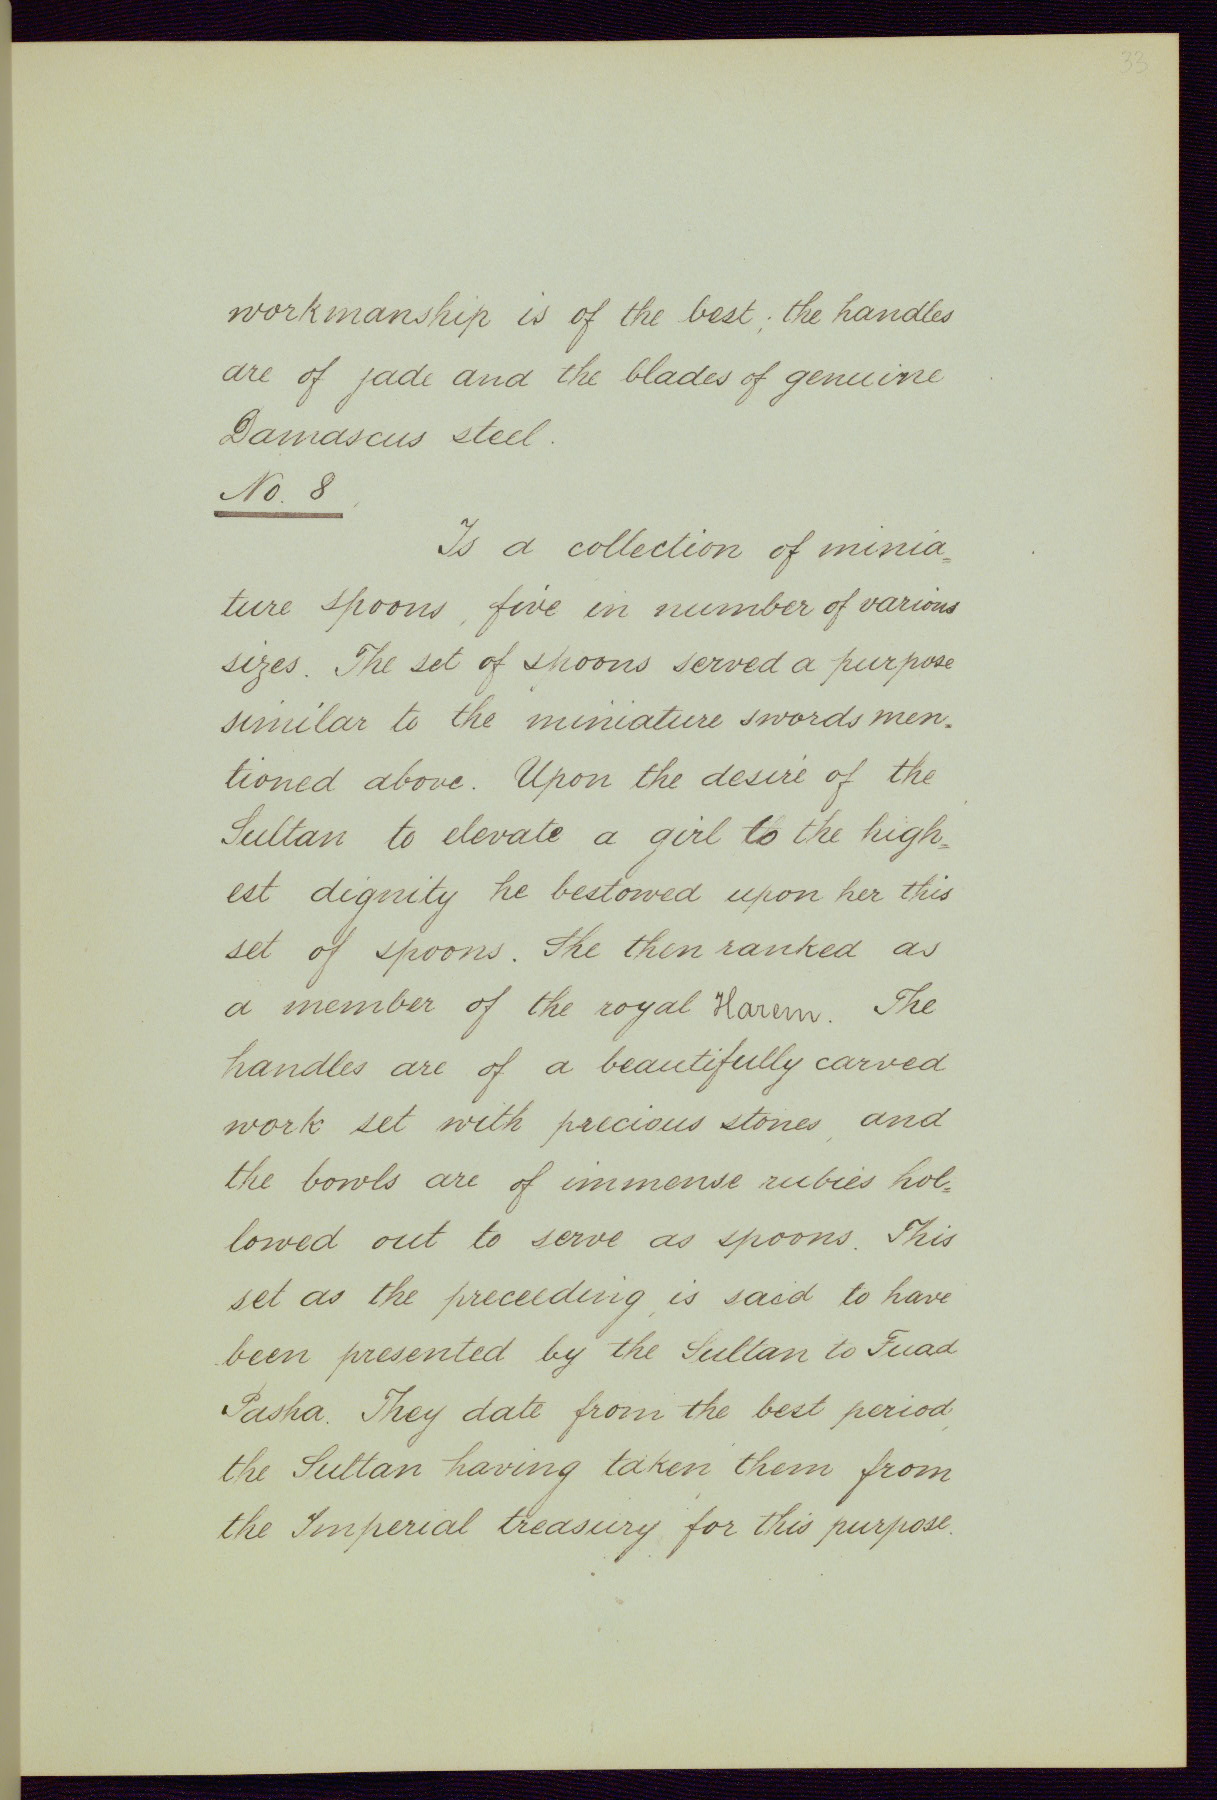 33
workmanship is of the best; the handles
are of jade and the blades of genuine
Damascus steel.
No. 8
Is a collection of minia=
ture spoons, five in number of various
sizes. The set of spoons served a purpose
similar to the miniature swords men=
tioned above. Upon the desire of the
Sultan to elevate a girl to the high=
est dignity he bestowed upon her this
set of spoons. She then ranked as
a member of the royal Harem. The
handles are of a beautifully carved
work set with precious stones, and
the bowls are of immense rubies hol=
lowed out to serve as spoons. This
set as the preceeding, is said to have
been presented by the Sultan to Fuad
Pasha. They date from the best period,
the Sultan having taken them from
the Imperial treasury for this purpose.